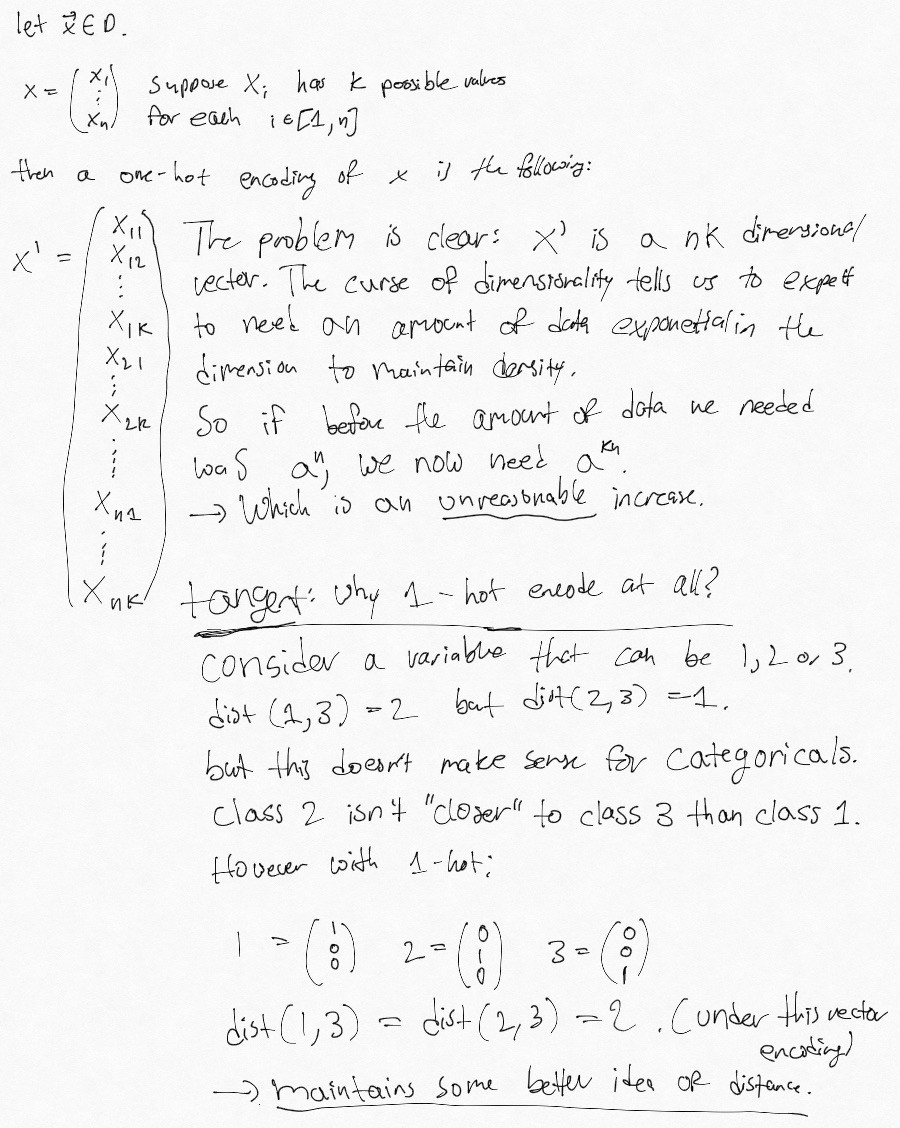 let x⃗ ∈ D.
x = (x₁ ⋮ xₙ) Suppose Xᵢ has k possible values
for each i ∈ [1, n]
then a one-hot encoding of x is the following:
x' = (X₁₁ X₁₂ ⋮ X₁ₖ X₂₁ ⋮ X₂ₖ ⋮ Xₙ₁ ⋮ Xₙₖ)
The problem is clear: x' is a nk dimensional
vector. The curse of dimensionality tells us to expect
to need an amount of data exponetial in the
dimension to maintain density.
So if before the amount of data we needed
was aⁿ, we now need aᵏⁿ.
→ Which is an unreasonable increase.
tangent: why 1-hot encode at all?
consider a variable that can be 1, 2 or 3.
dist (1,3) = 2 but dist(2,3) = 1.
but this doesn't make sense for categoricals.
class 2 isn't "closer" to class 3 than class 1.
However with 1-hot:
1 = (1 0 0) 2 = (0 1 0) 3 = (0 0 1)
dist(1,3) = dist(2,3) = 2. (under this vector
encoding)
→ maintains some better idea of distance.